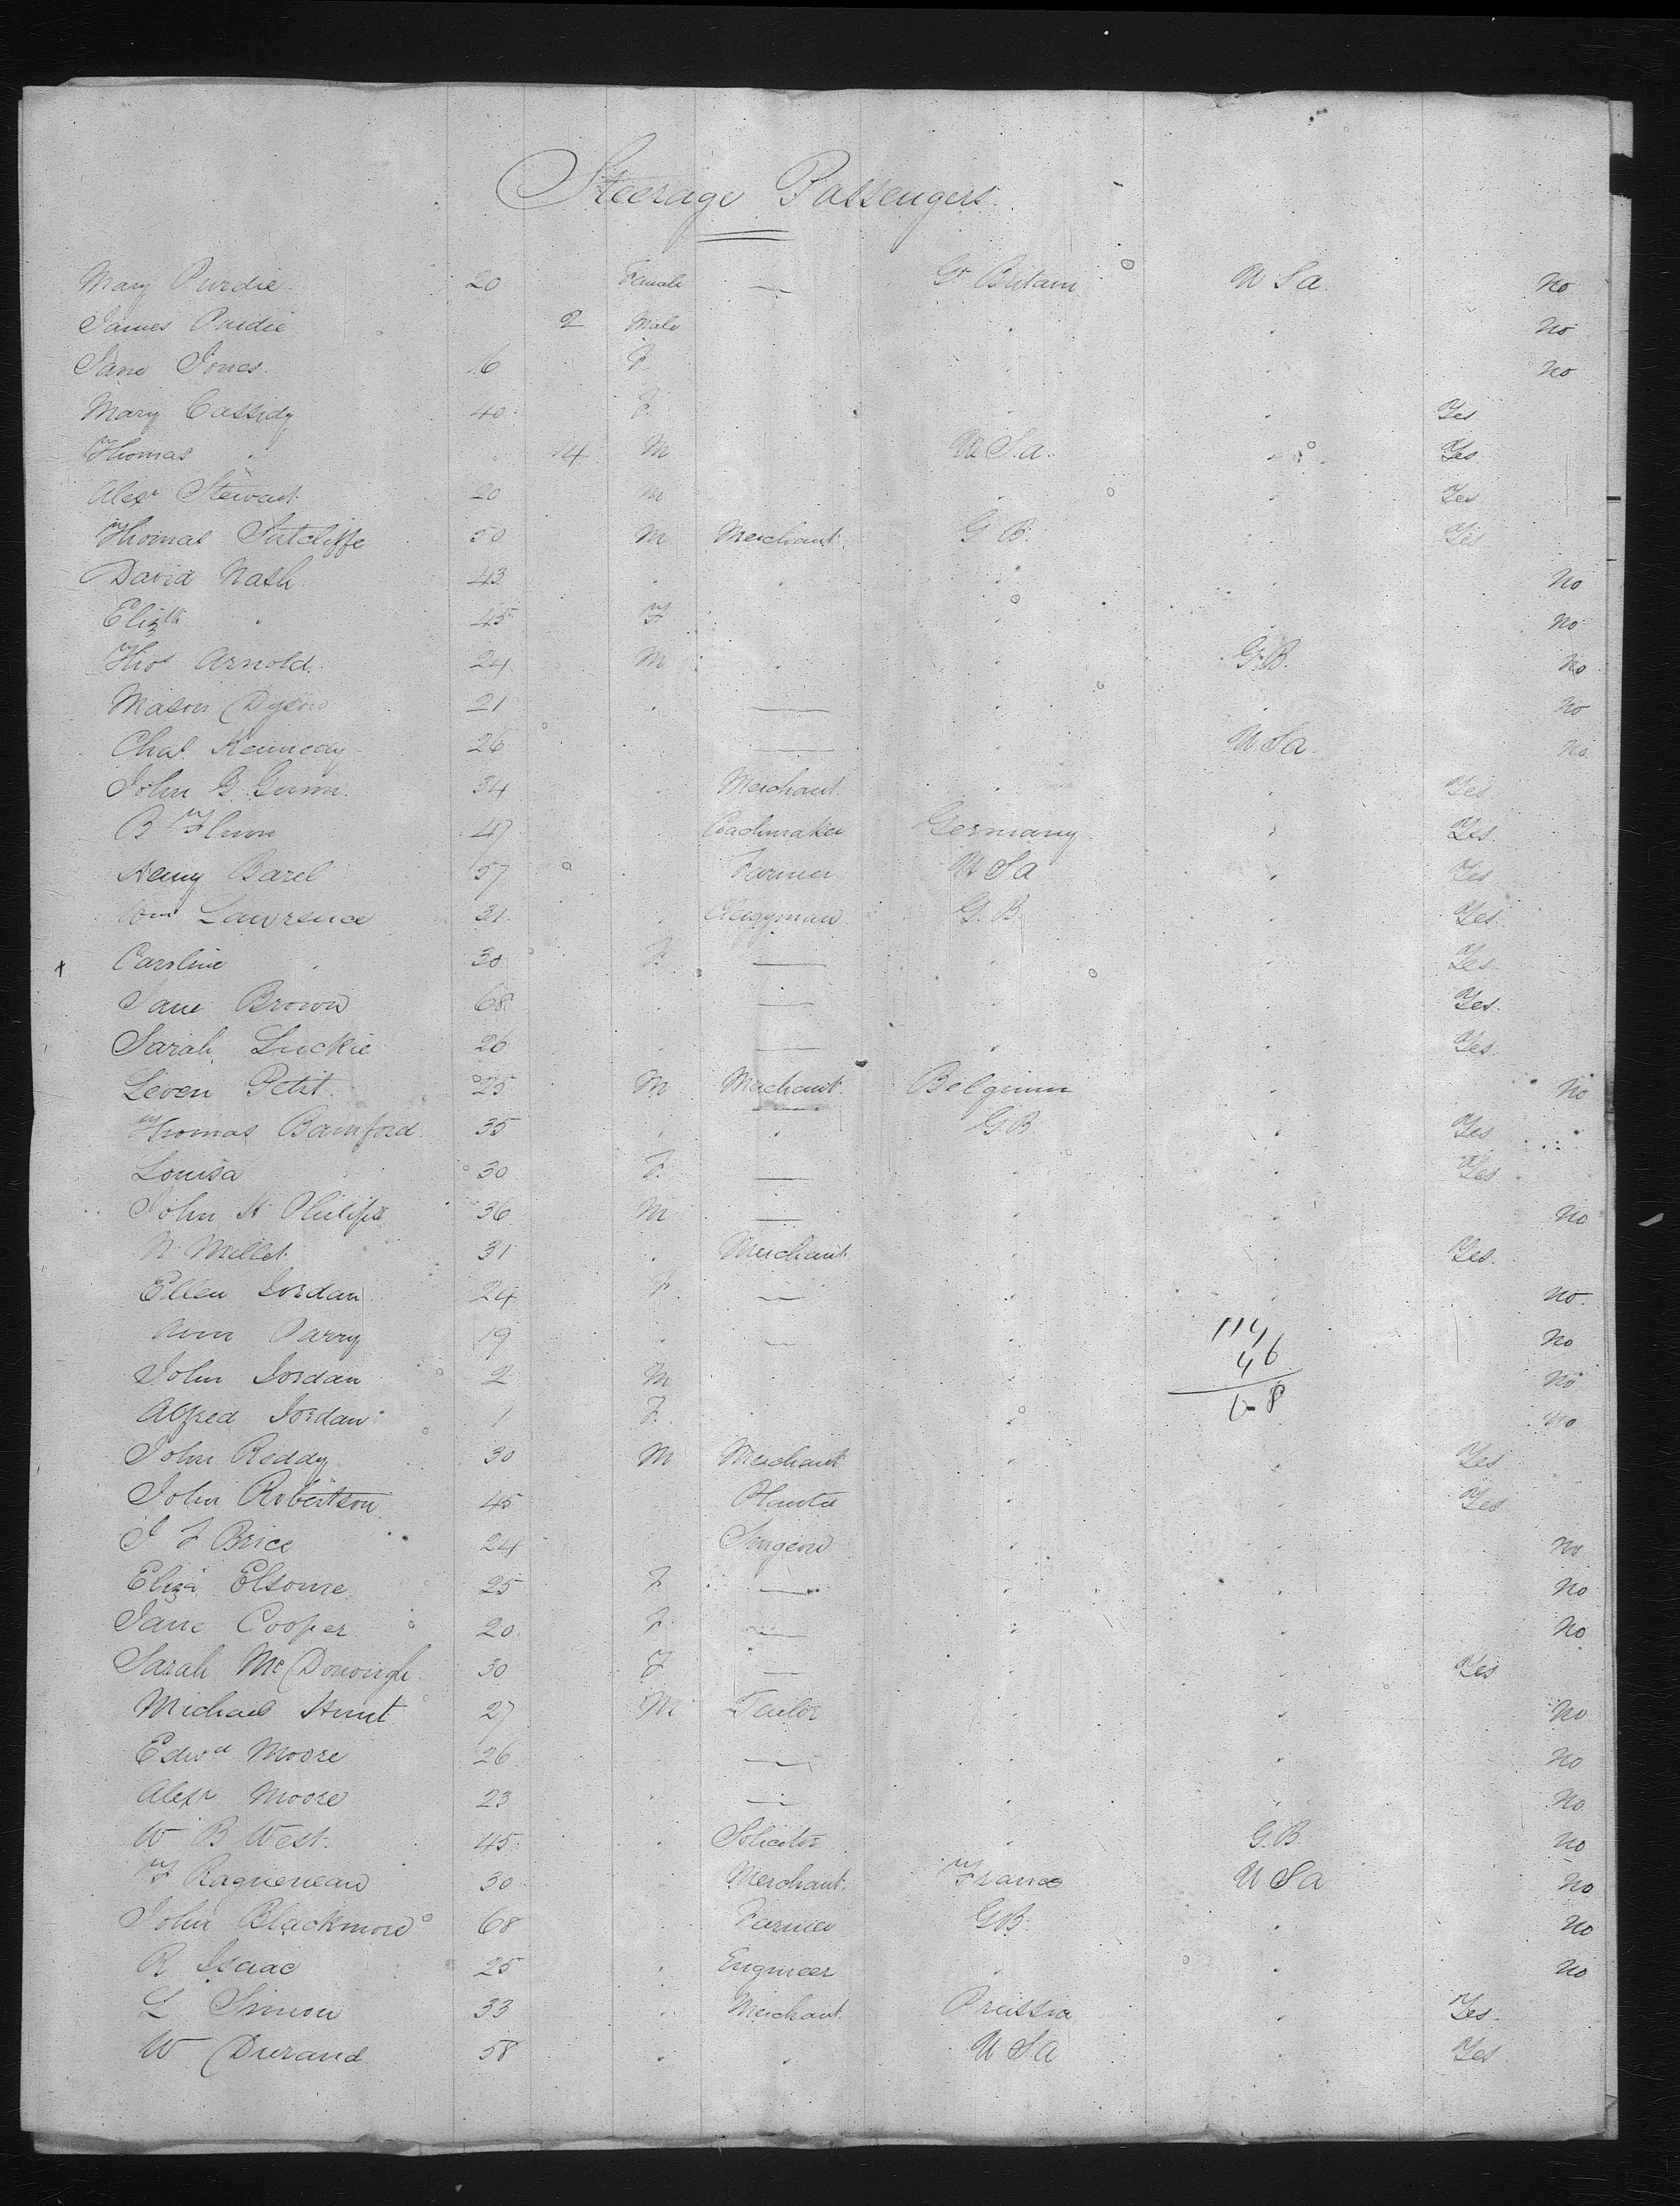 Steerage Passengers
Mary Purdie 20 Female — Gt Britain U S a No
James Purdie 2 Male " " No
Jane Jones 16 F " " No
Mary Cassidy 40 F " " Yes
Thomas " 14 M U.S.a. " Yes
Alexr Stewart 20 M " " Yes
Thomas Sutcliffe 50 M Merchant G B. " Yes
David Nash 43 " " " " No
Elizth " 45 F " " No
Thos Arnold 24 M " " G.B. No
Mason Dyson 21 " — " " No
Chas Kennedy 26 " — " U S a No
John G. Gunn 34 " Merchant " " Yes
B 47 " Coachmaker Germany " Yes
Henry Barel 57 " Farmer U S a " Yes
Wm Lawrence 31 " Clergyman G. B. " Yes
x Caroline " 30 F — " " Yes
Jane Brown 68 " — " " Yes
Sarah Luckie 26 " — " " Yes
Leven Petit 25 M Merchant Belgium " No
Thomas Bamford 35 " " G.B. " Yes
Louisa 30 F — " " Yes
John H Philips 36 M — " " No
N Millet 31 " Merchant " " Yes
Ellen Jordan 24 F — " " No
Parry 19 " — " No
114
46
68
John Jordan 2 M " " No
Alfred Jordan 1 F. " " No
John Reddy 30 M Merchant " " Yes
John Robertson 45 Planter " " Yes
J F Brice 24 Surgeon " " No
Eliza Elsome 25 F — " " No
Jane Cooper 20 F — " " No
Sarah McDonough 30 F — " " Yes
Michael Hunt 27 M Tailor " " No
Edwd Moore 26 " — " " No
Alexr Moore 23 " — " " No
W B West 45 " Solicitor " G.B. No
F Ragueneau 30 " Merchant France U S a No
John Blackmore 68 " Farmer G.B. " No
R Isaac 25 " Engineer " " No
L Simon 33 " Merchant Prussia " Yes
W Durand 58 " " U S a " Yes